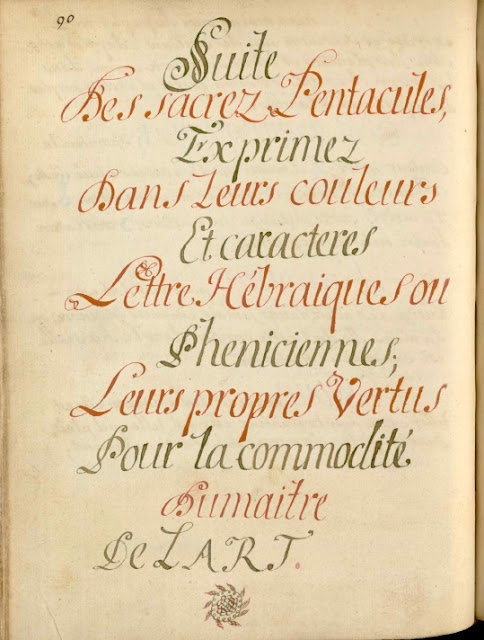 90
Suite
Des sacrez Pentacules,
Exprimez
Dans Leurs couleurs
Et caracteres
Lettre Hébraiques ou
Pheniciennes;
Leurs propres Vertus
Pour la commodité
Dumaitre
De L'ART.